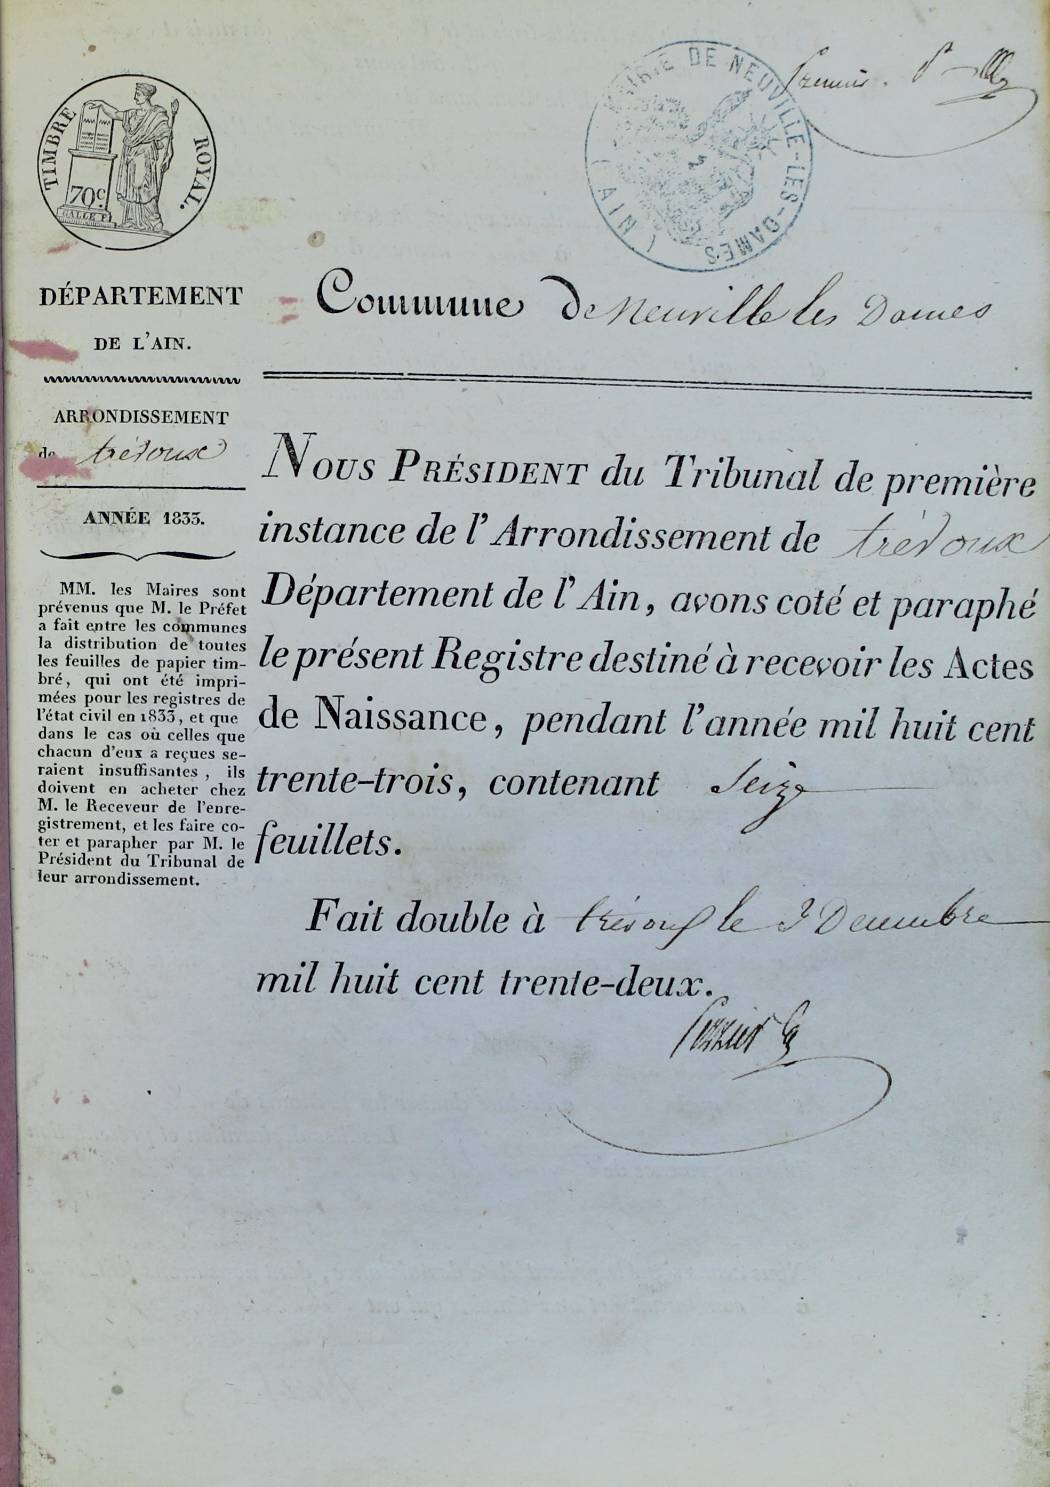 TIMBRE ROYAL.
70c
GALLE F.
MAIRIE DE NEUVILLE-LES-DAMES
(AIN)
Premier.
DÉPARTEMENT
DE L'AIN.
ARRONDISSEMENT
de trévoux
ANNÉE 1833.
MM. les Maires sont
prévenus que M. le Préfet
a fait entre les communes
la distribution de toutes
les feuilles de papier tim-
bré, qui ont été impri-
mées pour les registres de
l'état civil en 1833, et que
dans le cas où celles que
chacun d'eux a reçues se-
raient insuffisantes, ils
doivent en acheter chez
M. le Receveur de l'enre-
gistrement, et les faire co-
ter et parapher par M. le
Président du Tribunal de
leur arrondissement.
Commune De Neuville les Dames
NOUS PRÉSIDENT du Tribunal de première
instance de l'Arrondissement de trévoux
Département de l'Ain, avons coté et paraphé
le présent Registre destiné à recevoir les Actes
de Naissance, pendant l'année mil huit cent
trente-trois, contenant Seize
feuillets.
Fait double à trévoux le 3 Decembre
mil huit cent trente-deux.